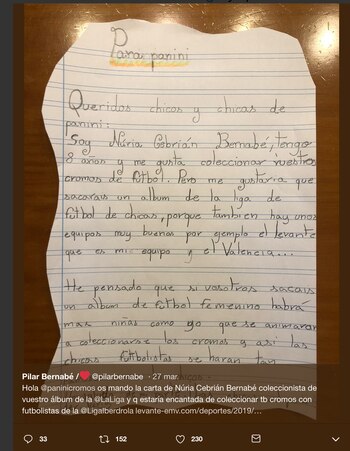 Para panini
Queridos chicos y chicas de
panini:
Soy Núria Cebrián Bernabé, tengo
8 años y me gusta coleccionar vuestros
cromos de fútbol. Pero me gustaria que
sacarais un album de la liga de
fútbol de chicas, porque tambien hay unos
equipos muy buenos por ejemplo el levante
que es mi equipo y el Valencia...
He pensado que si vosotros sacais
un álbum de fútbol femenino habrá
mas niñas como yo que se animaran
a coleccionarse los cromos y asi las
chicas futbolistas se haran tan
Pilar Bernabé / @pilarbernabe · 27 mar.
Hola @paninicromos os mando la carta de Núria Cebrián Bernabé coleccionista de
vuestro álbum de la @LaLiga y q estaria encantada de coleccionar tb cromos con
futbolistas de la @LigaIberdrola levante-emv.com/deportes/2019/…
33 152 230